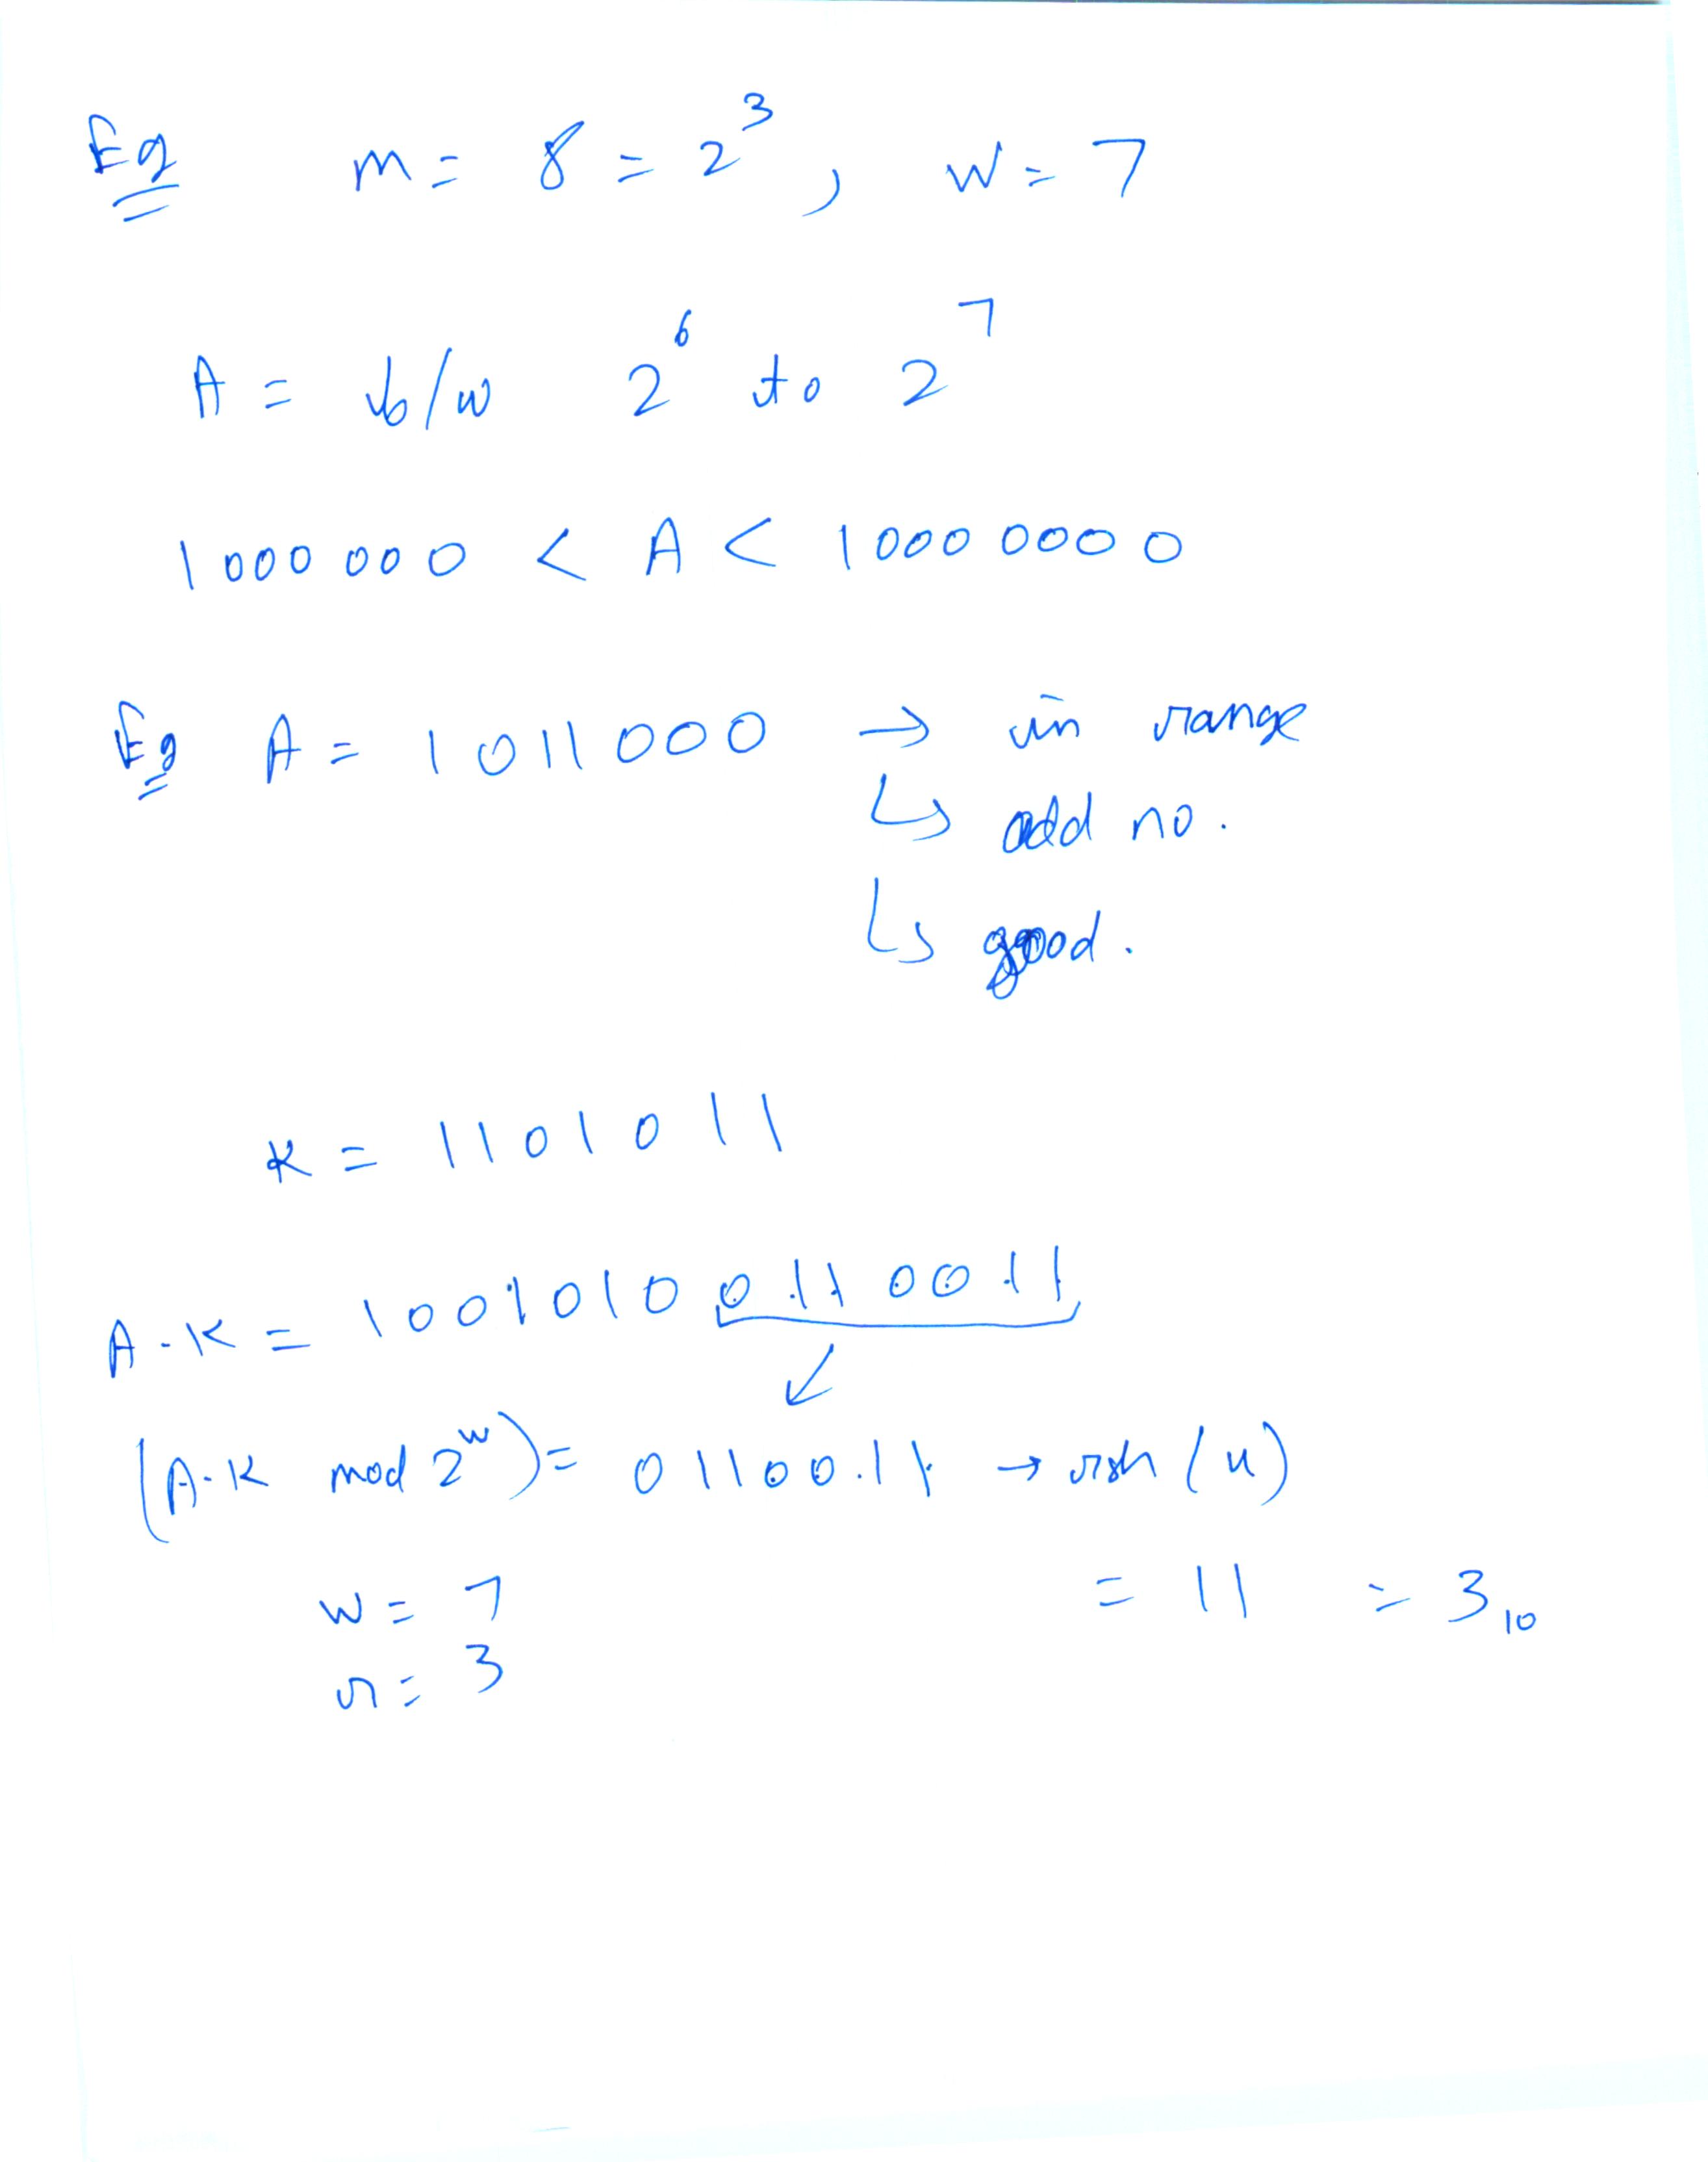 Eg m = 8 = 2³, W = 7
A = b/w 2⁶ to 2⁷
1000000 < A < 10000000
Eg A = 1011000 → in range
↳ odd no.
↳ good.
K = 1101011
A·K = 10010100110011
(A·K mod 2ʷ) = 0110011 → rsh (4)
= 11 = 3₁₀
W = 7
r = 3